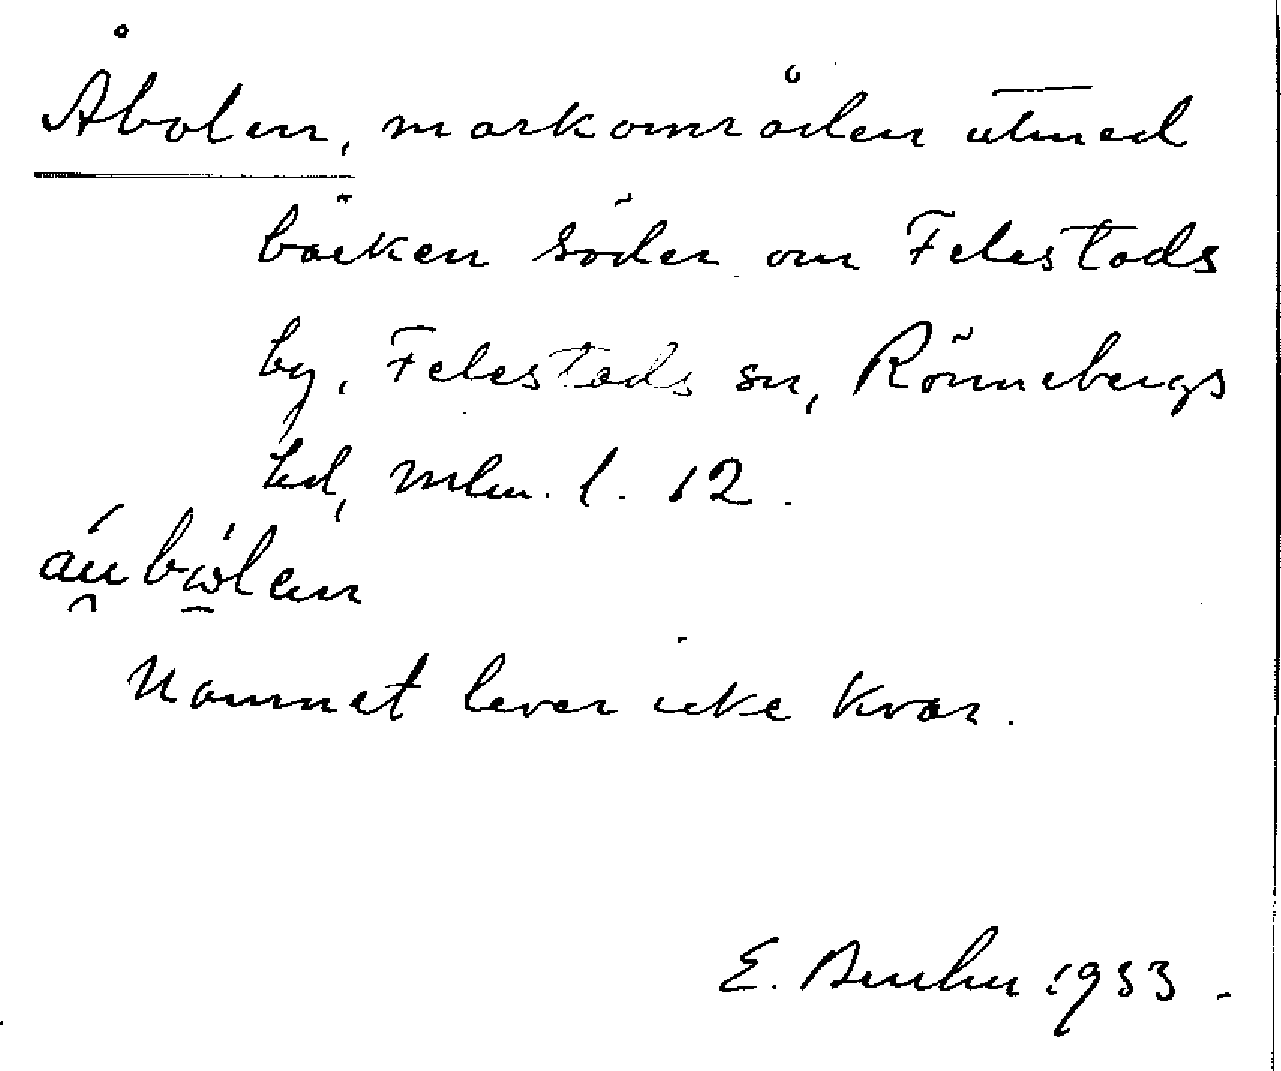 Åbolen, markområden utmed
bäcken söder om Felestads
by, Felestads sn, Rönnebergs
hd, Mlm. l. 12.
Namnet lever icke kvar.
E. 1933.